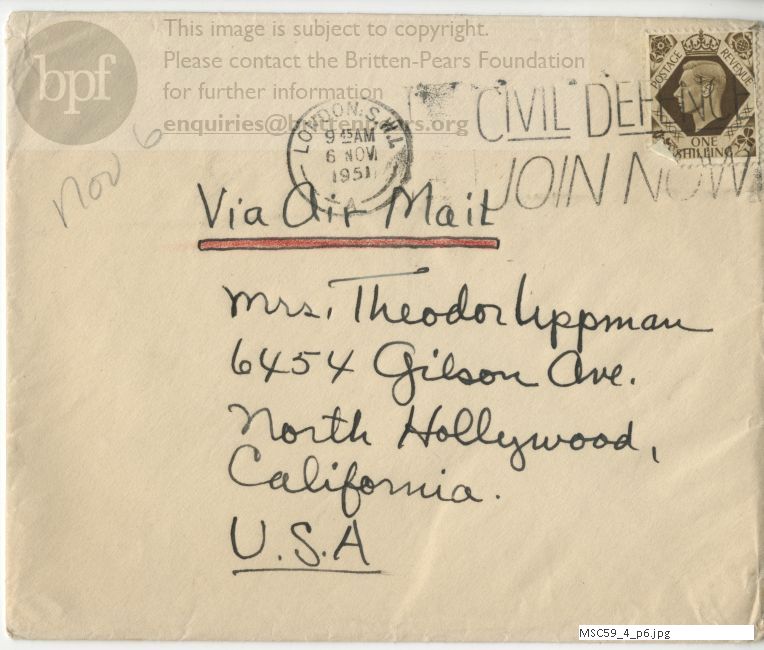 This image is subject to copyright.
Please contact the Britten-Pears Foundation
for further information
enquiries@brittenpears.org
bpf
POSTAGE REVENUE
ONE SHILLING
LONDON. S.W.1.
9 45 AM
6 NOV
1951
A
CIVIL DEFENCE
JOIN NOW
Nov 6
Via Air Mail
Mrs. Theodor Uppman
6454 Gilson Ave.
North Hollywood,
California.
U.S.A
MSC59_4_p6.jpg